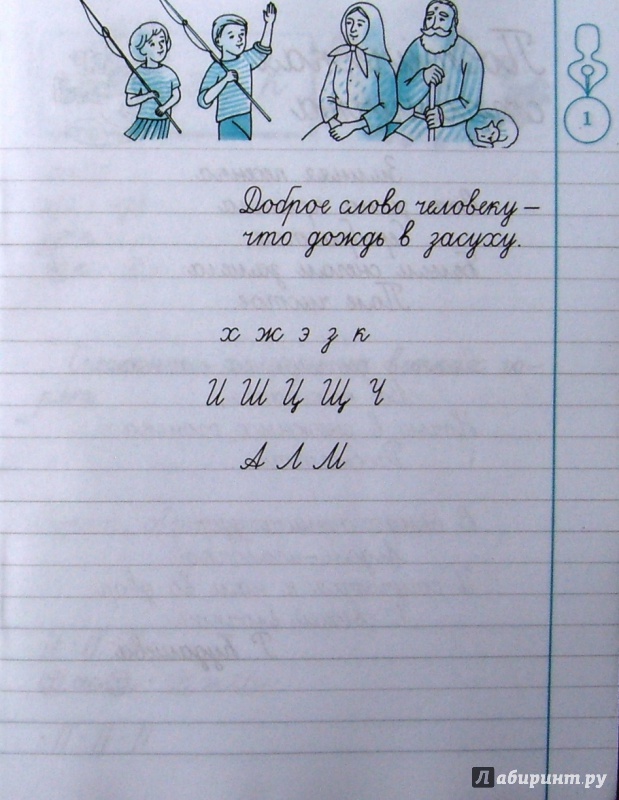 1
Доброе слово человеку –
что дождь в засуху.
х ж э з к
И Ш Ц Щ Ч
А Л М
Лабиринт.ру